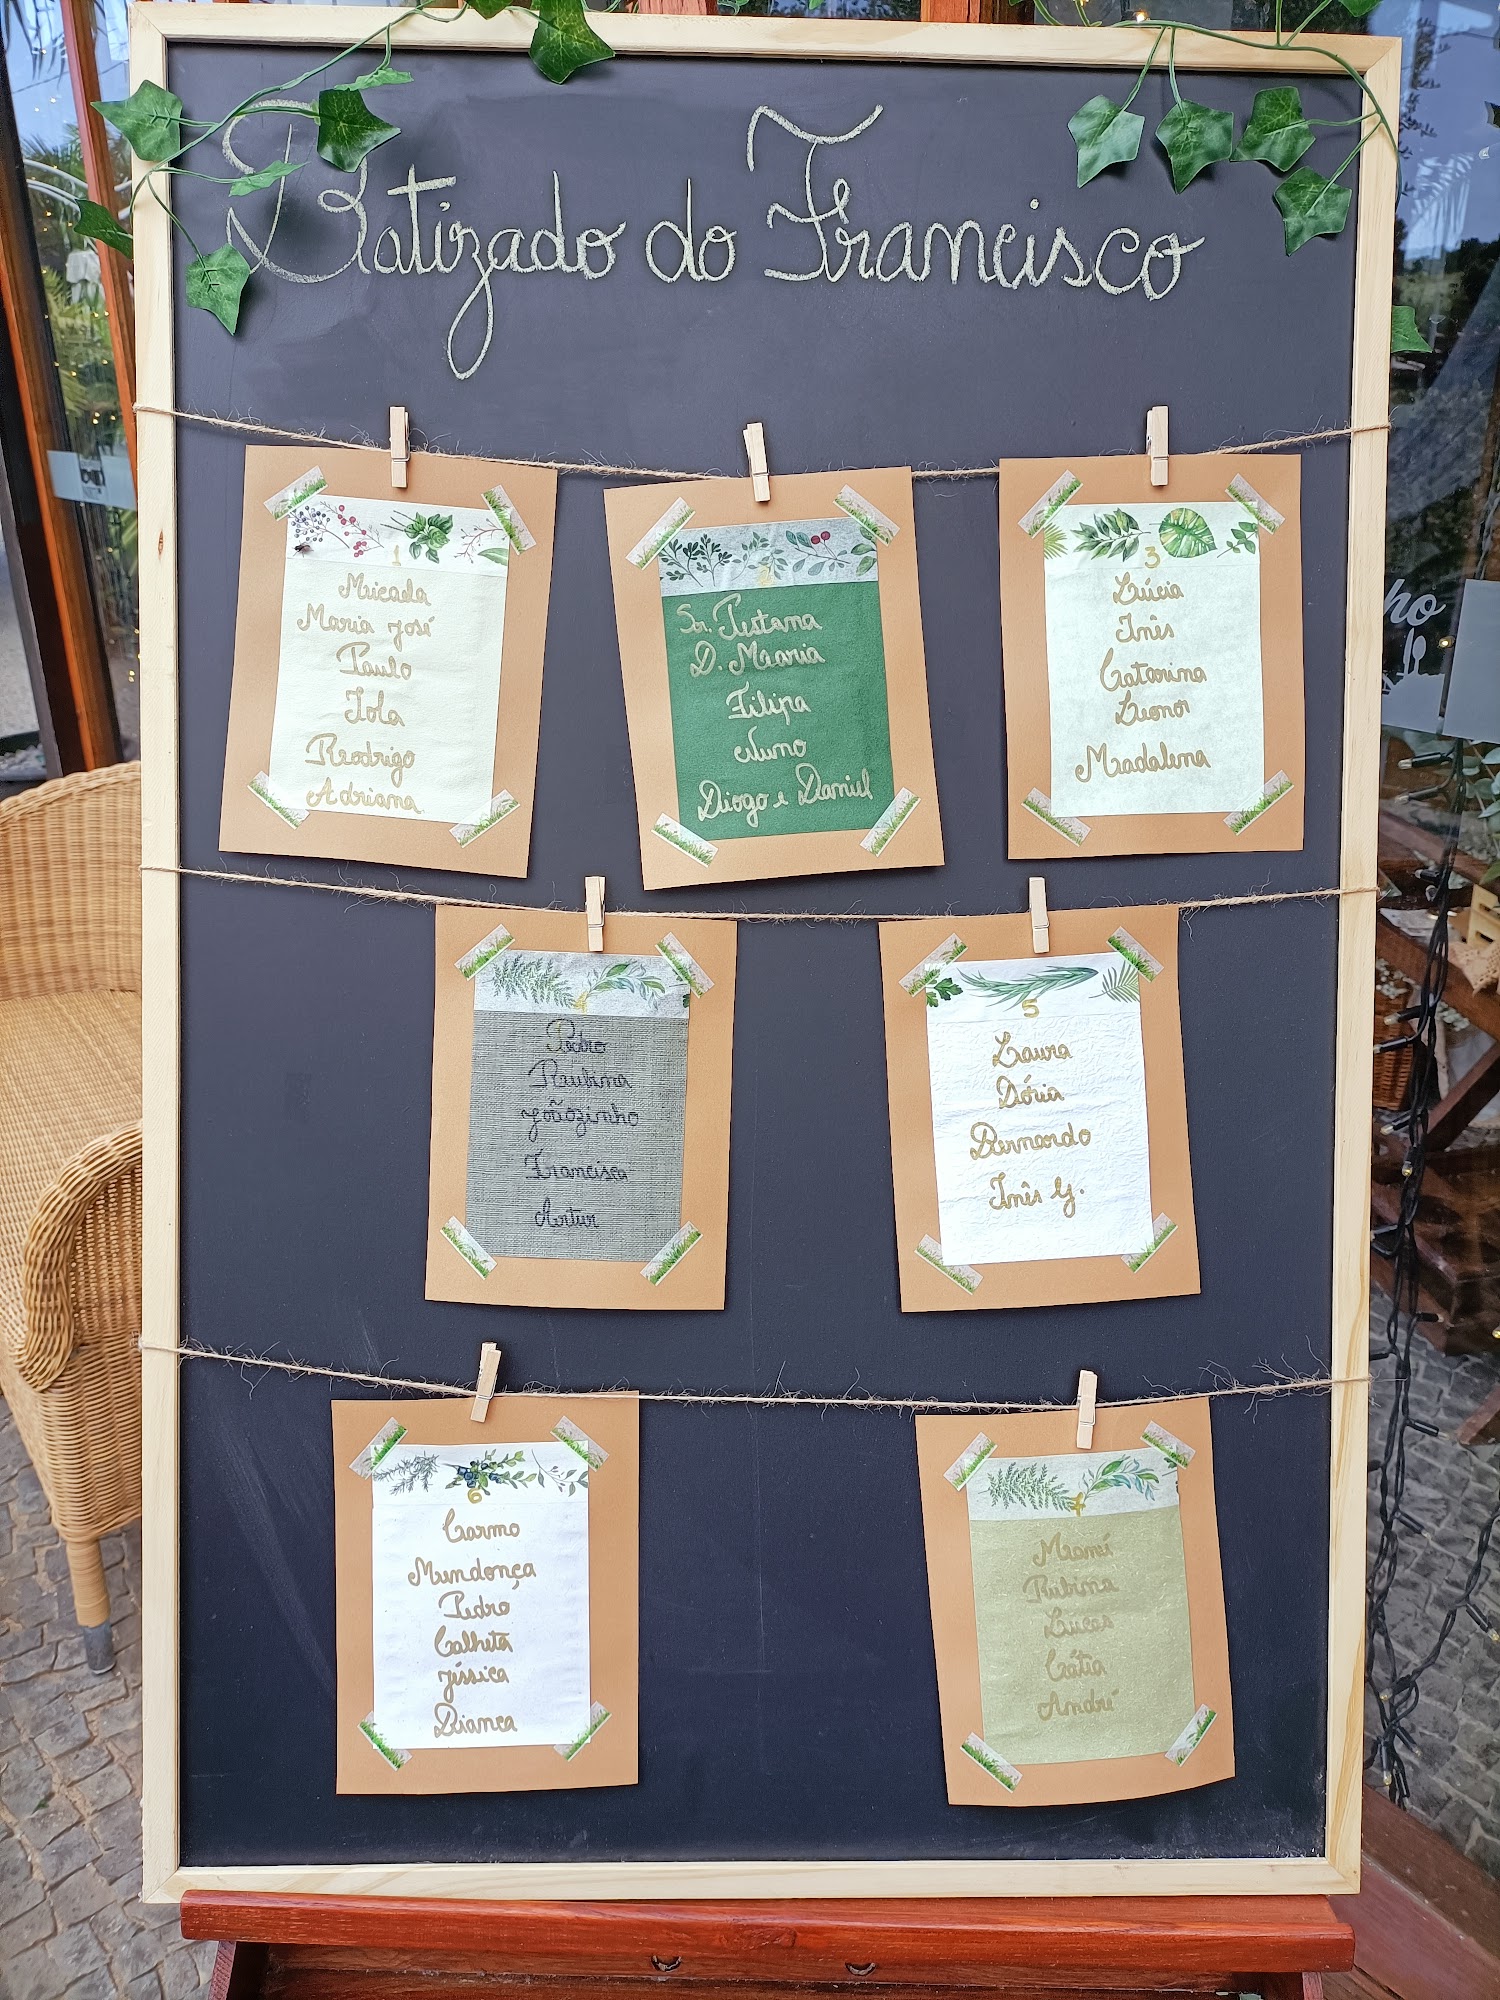 Batizado do Francisco
1
Micada
Maria José
Paulo
Iola
Rodrigo
Adriana
2
Sr. Pestana
D. Maria
Filipa
Nuno
Diogo e Daniel
3
Lúcia
Inês
Catarina
Leonor
Madalena
4
Pedro
Rubina
Joãozinho
Francisca
Artur
5
Laura
Dória
Bernardo
Inês G.
6
Carmo
Mendonça
Pedro
Calheta
Jéssica
Bianca
7
Rubina
Lucas
Cátia
André
ho